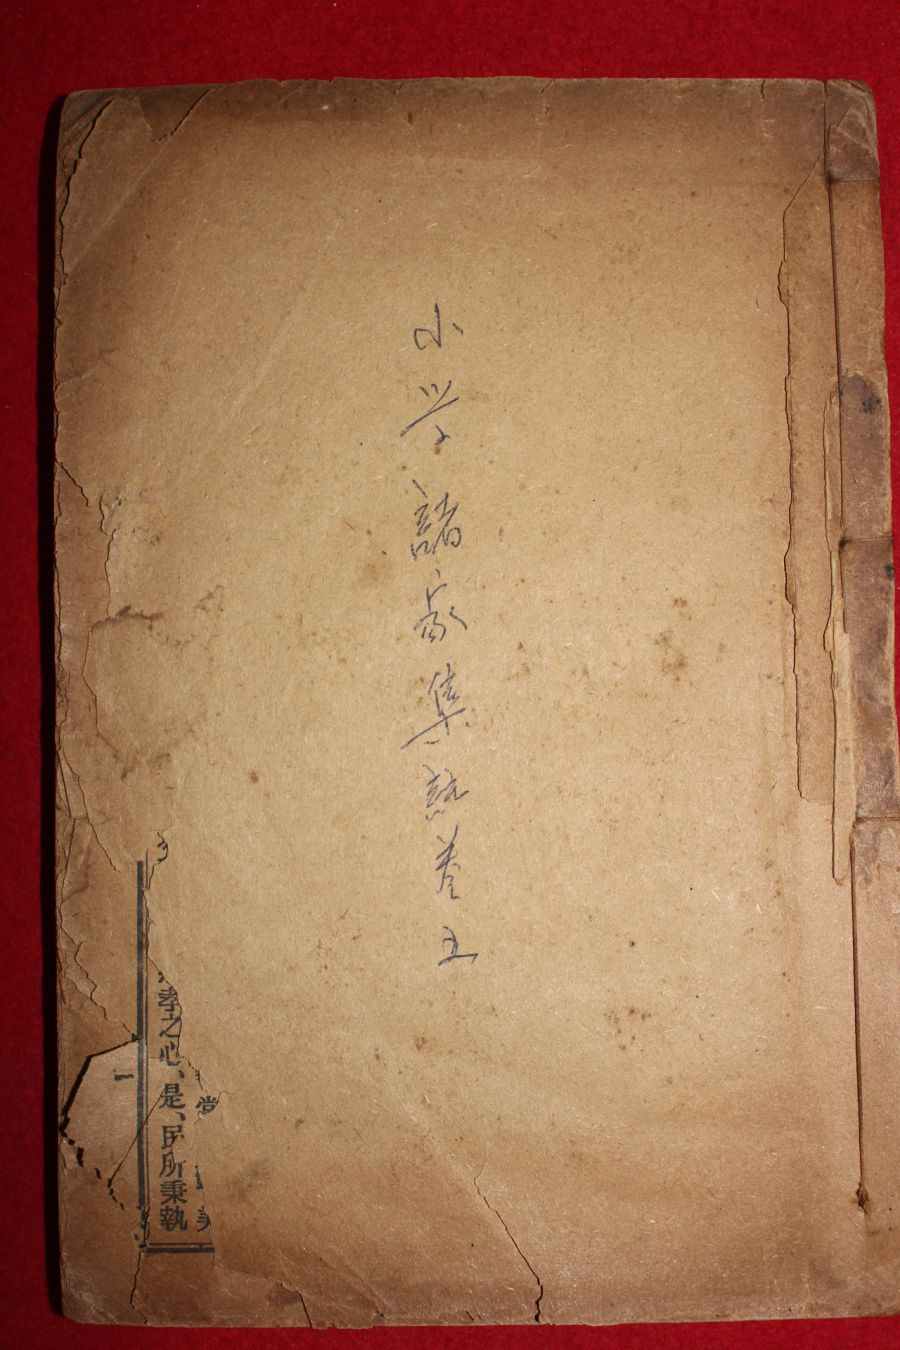 小学諸家集説卷五
常
孝之心、是、民所秉執
一